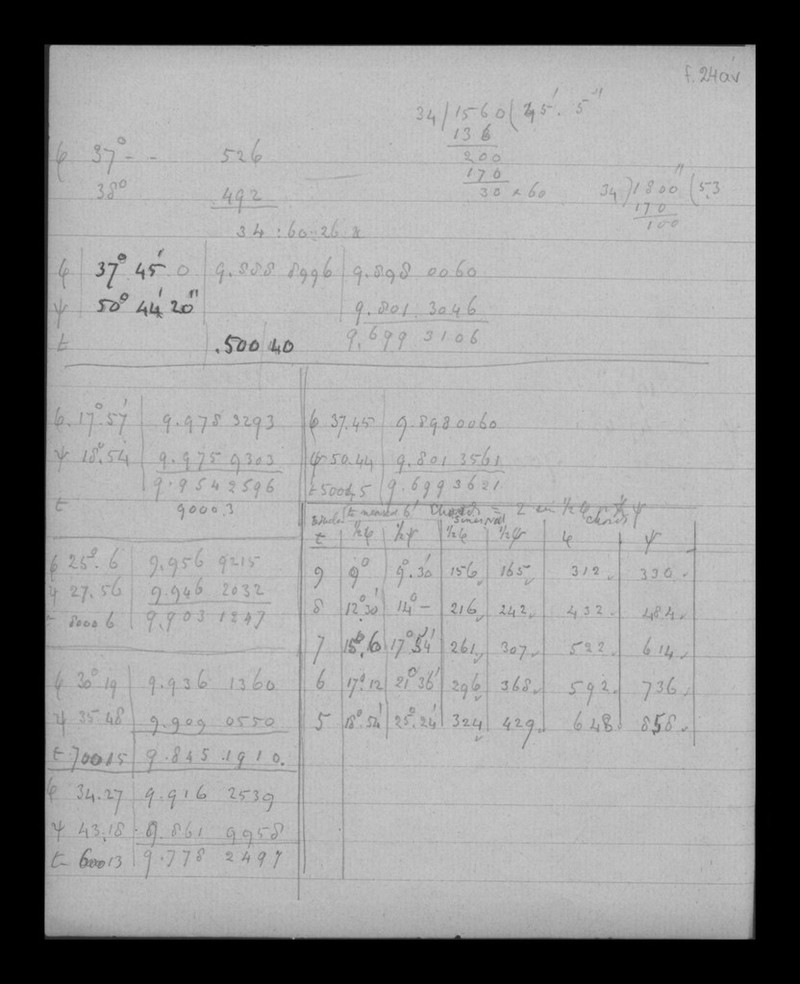 f. 24av
34 ) 1560 ( 45'. 5"
136
200
170
30 × 60
34 ) 1800" ( 5.3
170
100
φ 37° - - 526
38° 492
34 : 60 :: 26 : x
φ 37° 45' 0 9.888 8996 9.898 0060
ψ 50° 44' 20" 9.801 3046
t .50040 9.699 3106
φ. 17° 57' 9.978 3293
ψ 18°. 54 9.975 9303
9.954 2596
t 90003
φ 25°. 6 9.956 9215
ψ 27. 56 9.946 2032
t 80006 9.903 1247
φ 30° 19 9.936 1360
ψ 35. 48 9.909 0550
t 70015 9.845 1910.
φ 34. 27 9.916 2539
ψ 43. 18 9.861 9958
t 60013 9.778 2497
φ 37. 45 9.898 0060
ψ 50. 44 9.801 3561
t 50045 9.699 3621
Chords = 2 sin ½ φ or ½ ψ
t ½φ ½ψ ½φ ½ψ φ chords ψ
9 9° 9°. 30' 156 165 312. 330.
8 12° 30' 14° - 216 242. 432. 484.
7 15°. 10 17° 54' 261 307. 522. 614.
6 17°. 12 21° 36' 296 368. 592. 736.
5 18°. 54' 25°. 24' 324 429. 648. 858.